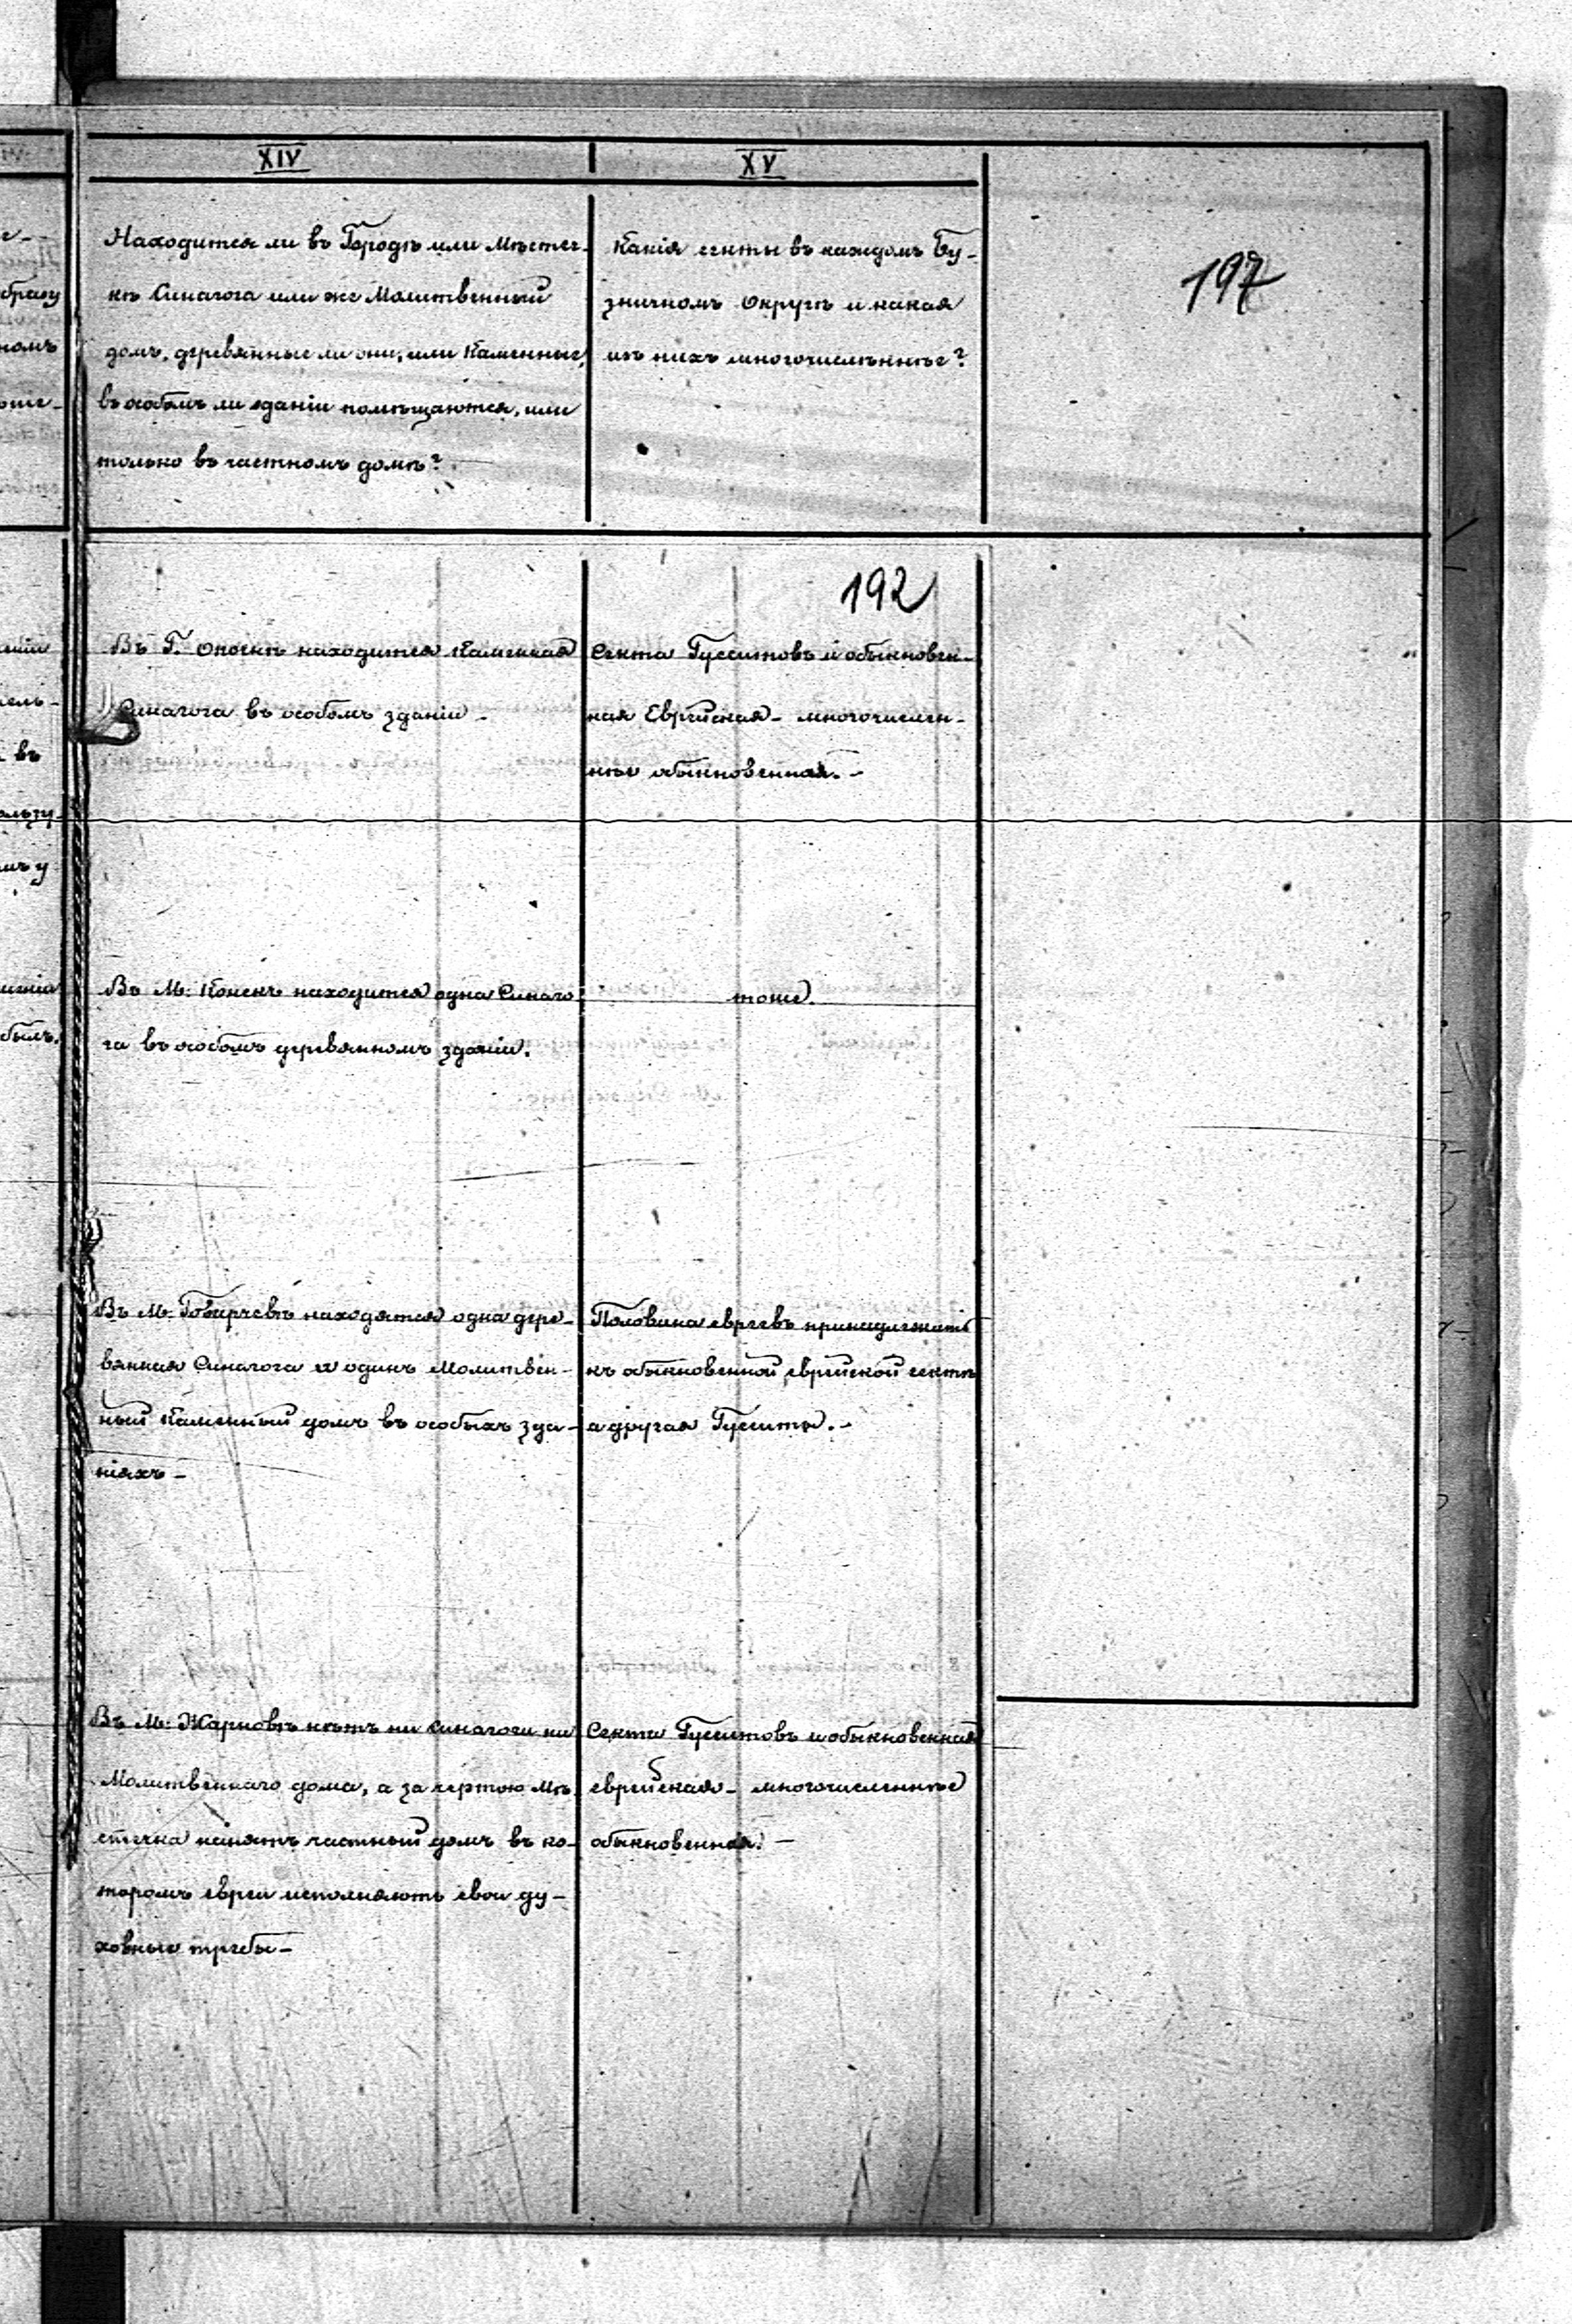 XIV
Находится ли въ Городѣ или Мѣстеч-
кѣ Синагога или же Молитвенный
домъ, деревянные ли они, или Каменные,
въ особомъ ли зданіи помѣщаются, или
только въ частномъ домѣ?
XV
Какія секты въ каждомъ Бу-
зничномъ Округѣ и какая
изъ нихъ многочисленнѣе?
197
192
Въ Г. Опочнѣ находится Каменная
Синагога въ особомъ зданіи -
Секта Гусситовъ и обыкновен-
ная Еврейская - многочислен-
нѣе обыкновенная. -
Въ М: Конскъ находится одна Синаго
га въ особомъ деревянномъ зданіи.
тоже.
Въ М: Говарчевѣ находятся одна дере-
вянная Синагога и одинъ Молитвен-
ный Каменный домъ въ особыхъ зда-
ніяхъ -
Половина евреевъ принадлежатъ
къ обыкновенной еврейской сектѣ
а другая Гусситы. -
Въ М: Жарновѣ нѣтъ ни Синагоги ни
Молитвеннаго дома, а за чертою мѣ-
стечка нанятъ частный домъ въ ко-
торомъ евреи исполняютъ свои ду-
ховные требы -
Секта Гусситовъ и обыкновенная
еврейская - многочисленнѣе
обыкновенная. -